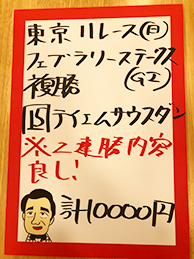 東京11レース(日)
フェブラリーステークス
複勝 (GⅠ)
15テイエムサウスダン
※二連勝内容
良し!
計10000円